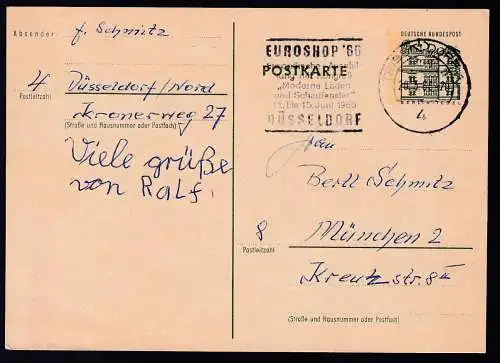 Absender: f. Schmitz
4 Düsseldorf/Nord
Postleitzahl
Kronerweg 27
(Straße und Hausnummer oder Postfach)
Viele grüße
von Ralf.
DEUTSCHE BUNDESPOST
EUROSHOP '66
POSTKARTE
"Moderne Läden
und Schaufenster"
11. bis 15. Juni 1966
DÜSSELDORF
Frau
Bertl Schmitz
8 München 2
Postleitzahl
Kreuzstr. 8 II
(Straße und Hausnummer oder Postfach)